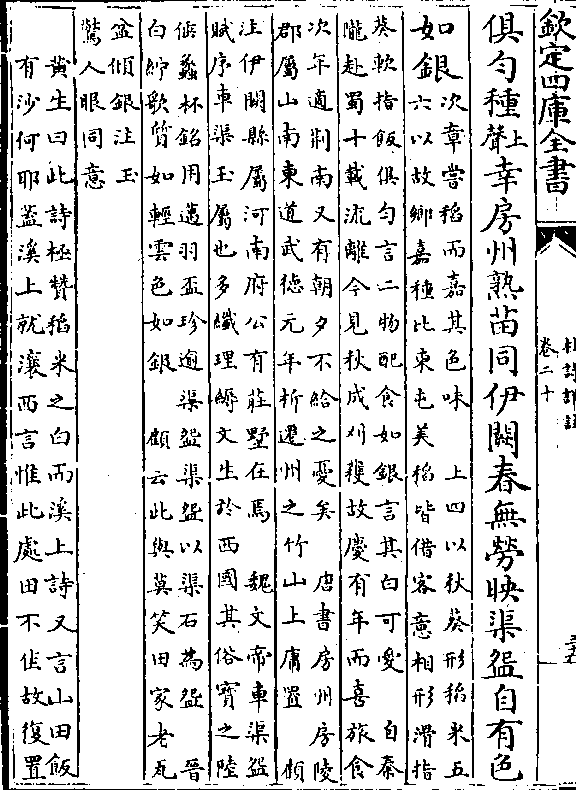 欽定四庫全書
杜詩詳註
卷二十
三五
俱勻種上聲幸房州熟苗同伊闕春無勞映渠盌自有色
如銀
次章嘗稻而嘉其色味　上四以秋葵形稻米五
六以故鄉嘉種比東屯美稻皆借客意相形滑指
葵軟指飯俱勻言二物配食如銀言其白可愛　自秦
隴赴蜀十載流離今見秋成刈穫故慶有年而喜旅食
次年適荆南又有朝夕不給之憂矣　唐書房州房陵
郡屬山南東道武德元年析遷州之竹山上庸置　顧
注伊闕縣屬河南府公有莊墅在焉　魏文帝車渠盌
賦序車渠玉屬也多纖理縟文生於西國其俗寶之陸
倕蠡杯銘用邁羽盃珍逾渠盌渠盌以渠石為盌　晉
白紵歌質如輕雲色如銀　顧云此與莫笑田家老瓦
盆傾銀注玉
驚人眼同意
黄生曰此詩極賛稻米之白而溪上詩又言山田飯
有沙何耶葢溪上就瀼西言惟此處田不佳故復置